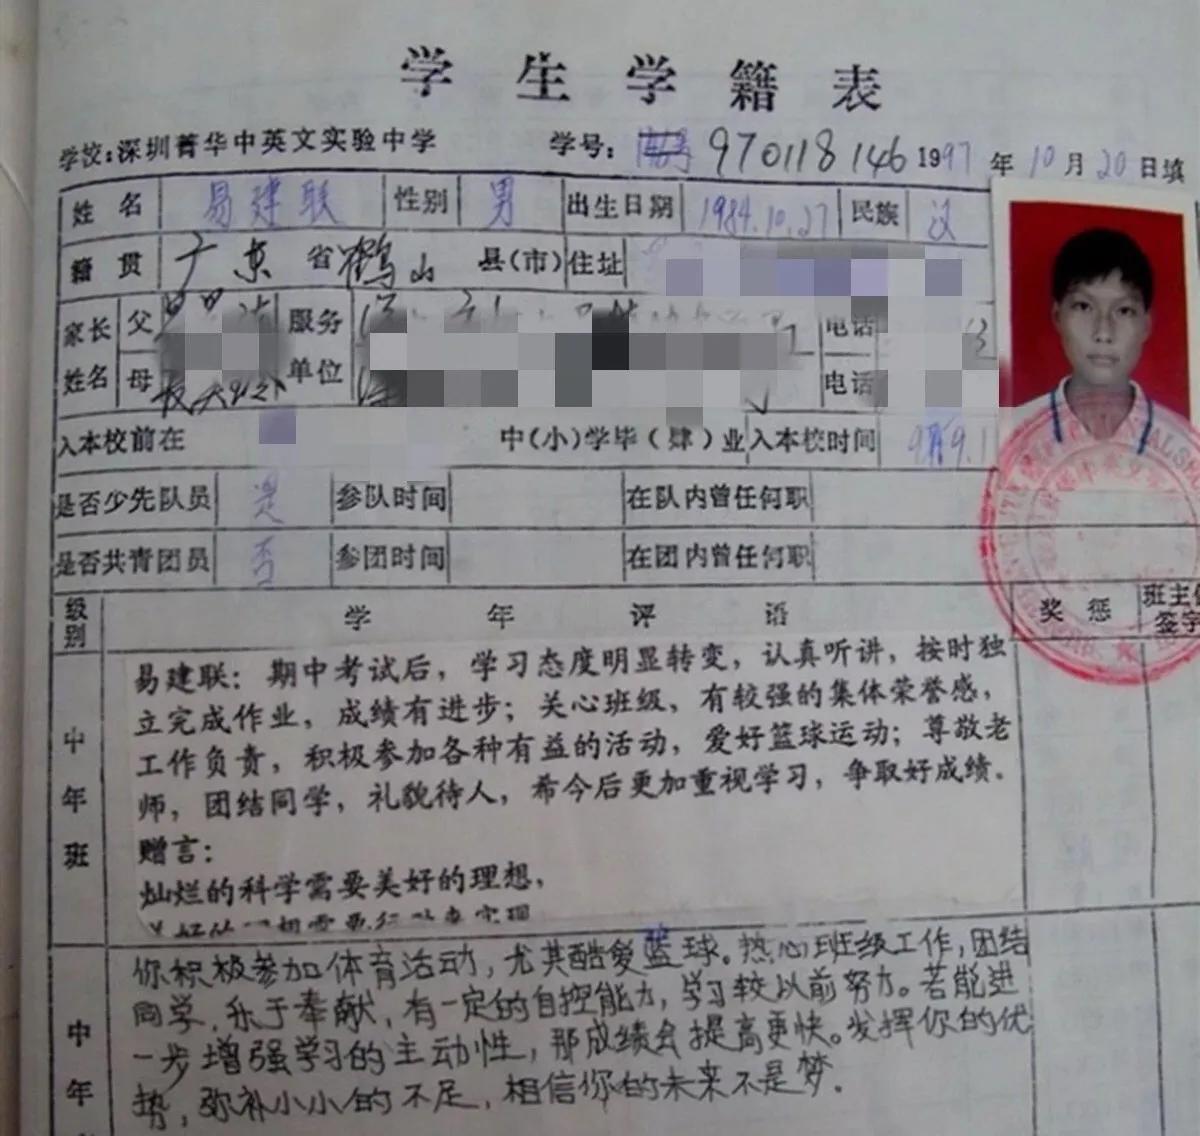 学生学籍表
学校:深圳菁华中英文实验中学 学号: 970118146 1997年10月20日填
姓名 易建联 性别 男 出生日期 1984.10.27 民族 汉
籍贯 广东省鹤山县(市) 住址
家长 父 服务 电话
姓名 母 单位 电话
入本校前在 中(小)学毕(肄)业 入本校时间
是否少先队员 是 参队时间 在队内曾任何职
是否共青团员 否 参团时间 在团内曾任何职
级别 学年评语 奖惩 班主 签字
中年班
易建联:期中考试后,学习态度明显转变,认真听讲,按时独
立完成作业,成绩有进步;关心班级,有较强的集体荣誉感,
工作负责,积极参加各种有益的活动,爱好篮球运动;尊敬老
师,团结同学,礼貌待人,希今后更加重视学习,争取好成绩。
赠言:
灿烂的科学需要美好的理想,
中年
你积极参加体育活动,尤其酷爱篮球。热心班级工作,团结
同学,乐于奉献,有一定的自控能力,学习较以前努力。若能进
一步增强学习的主动性,那成绩会提高更快。发挥你的优
势,弥补小小的不足,相信你的未来不是梦.